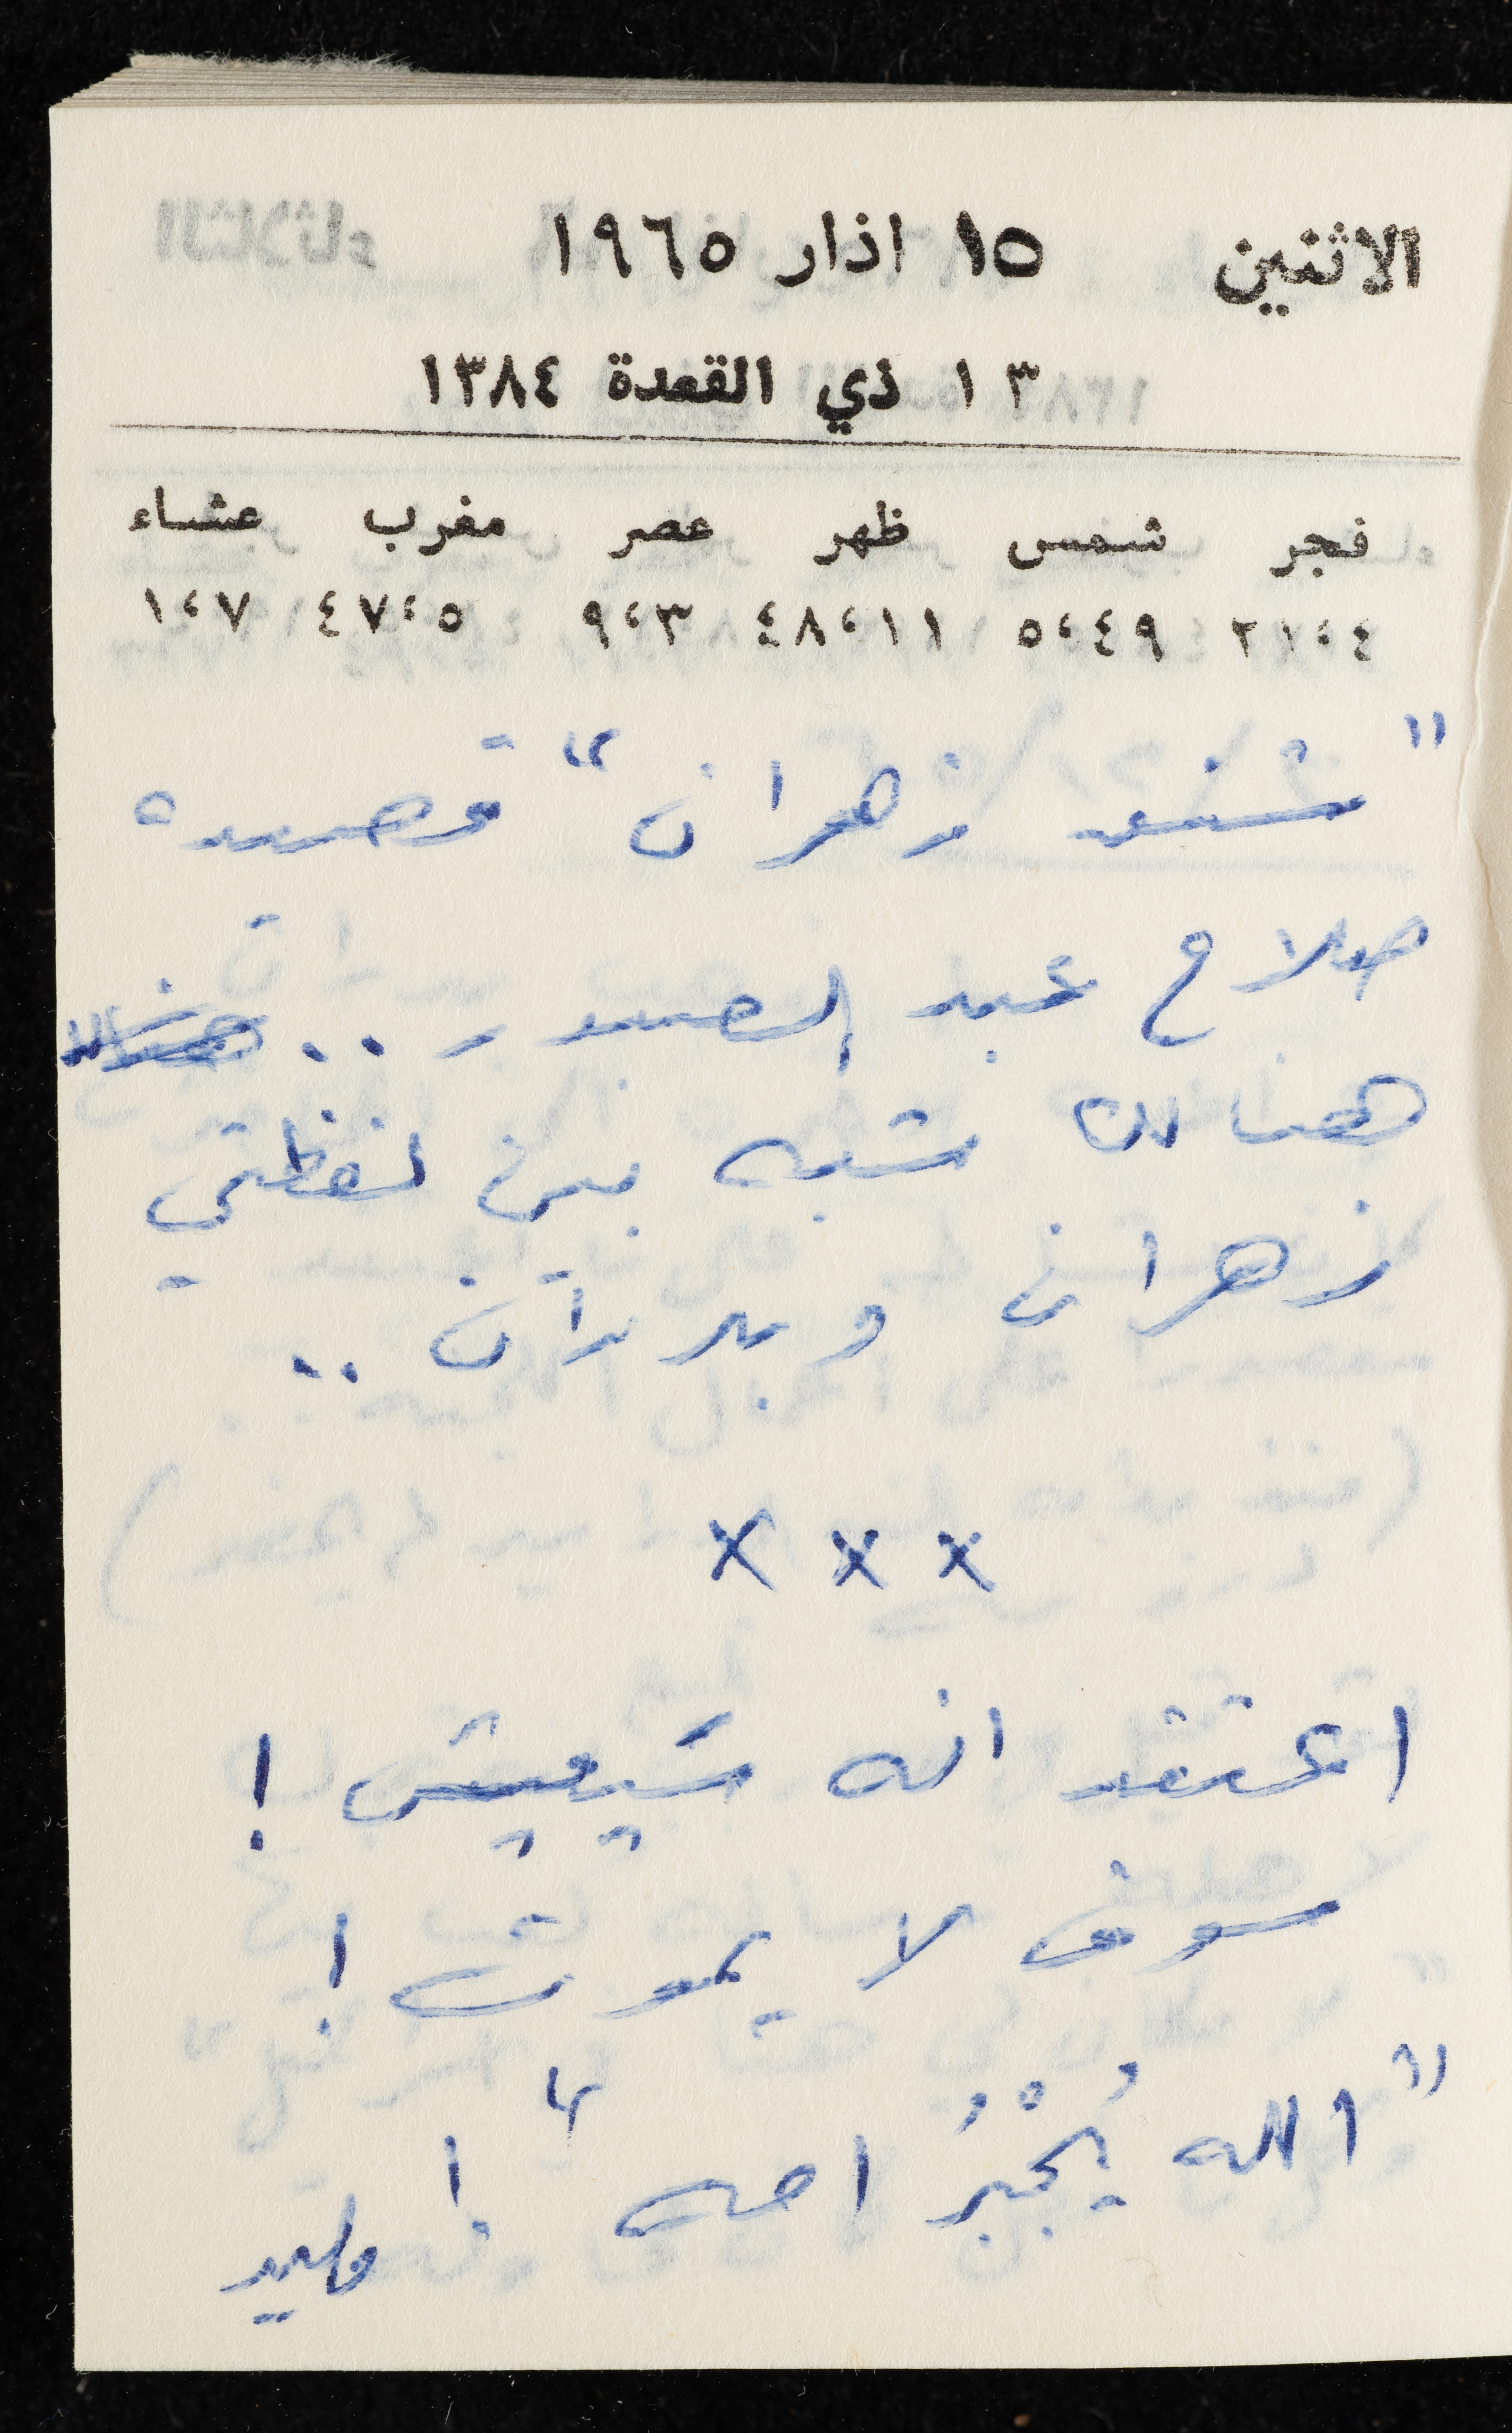 الاثنين ١٥ اذار ١٩٦٥
١٣ ذي القعدة ١٣٨٤
فجر شمس ظهر عصر مغرب عشاء
٤،٢١ ٥،٤٩ ١١،٤٨ ٣،٩ ٥،٤٧ ٧،١
"شنق زهران" قصيدة
صلاح عبد الصبور ..
هنالك شبه بين لفظتي
زهران وبدران ..
× × ×
اعتقد انه سَيعيش !
سوف لا يموت !
"الله يُجْبُر امه" !
وليد